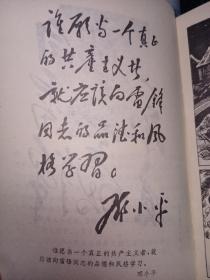 谁愿当一个真正
的共产主义者，
就应该向雷锋
同志的品德和风
格学习。
邓小平
谁愿当一个真正的共产主义者，就
应该向雷锋同志的品德和风格学习。
邓小平